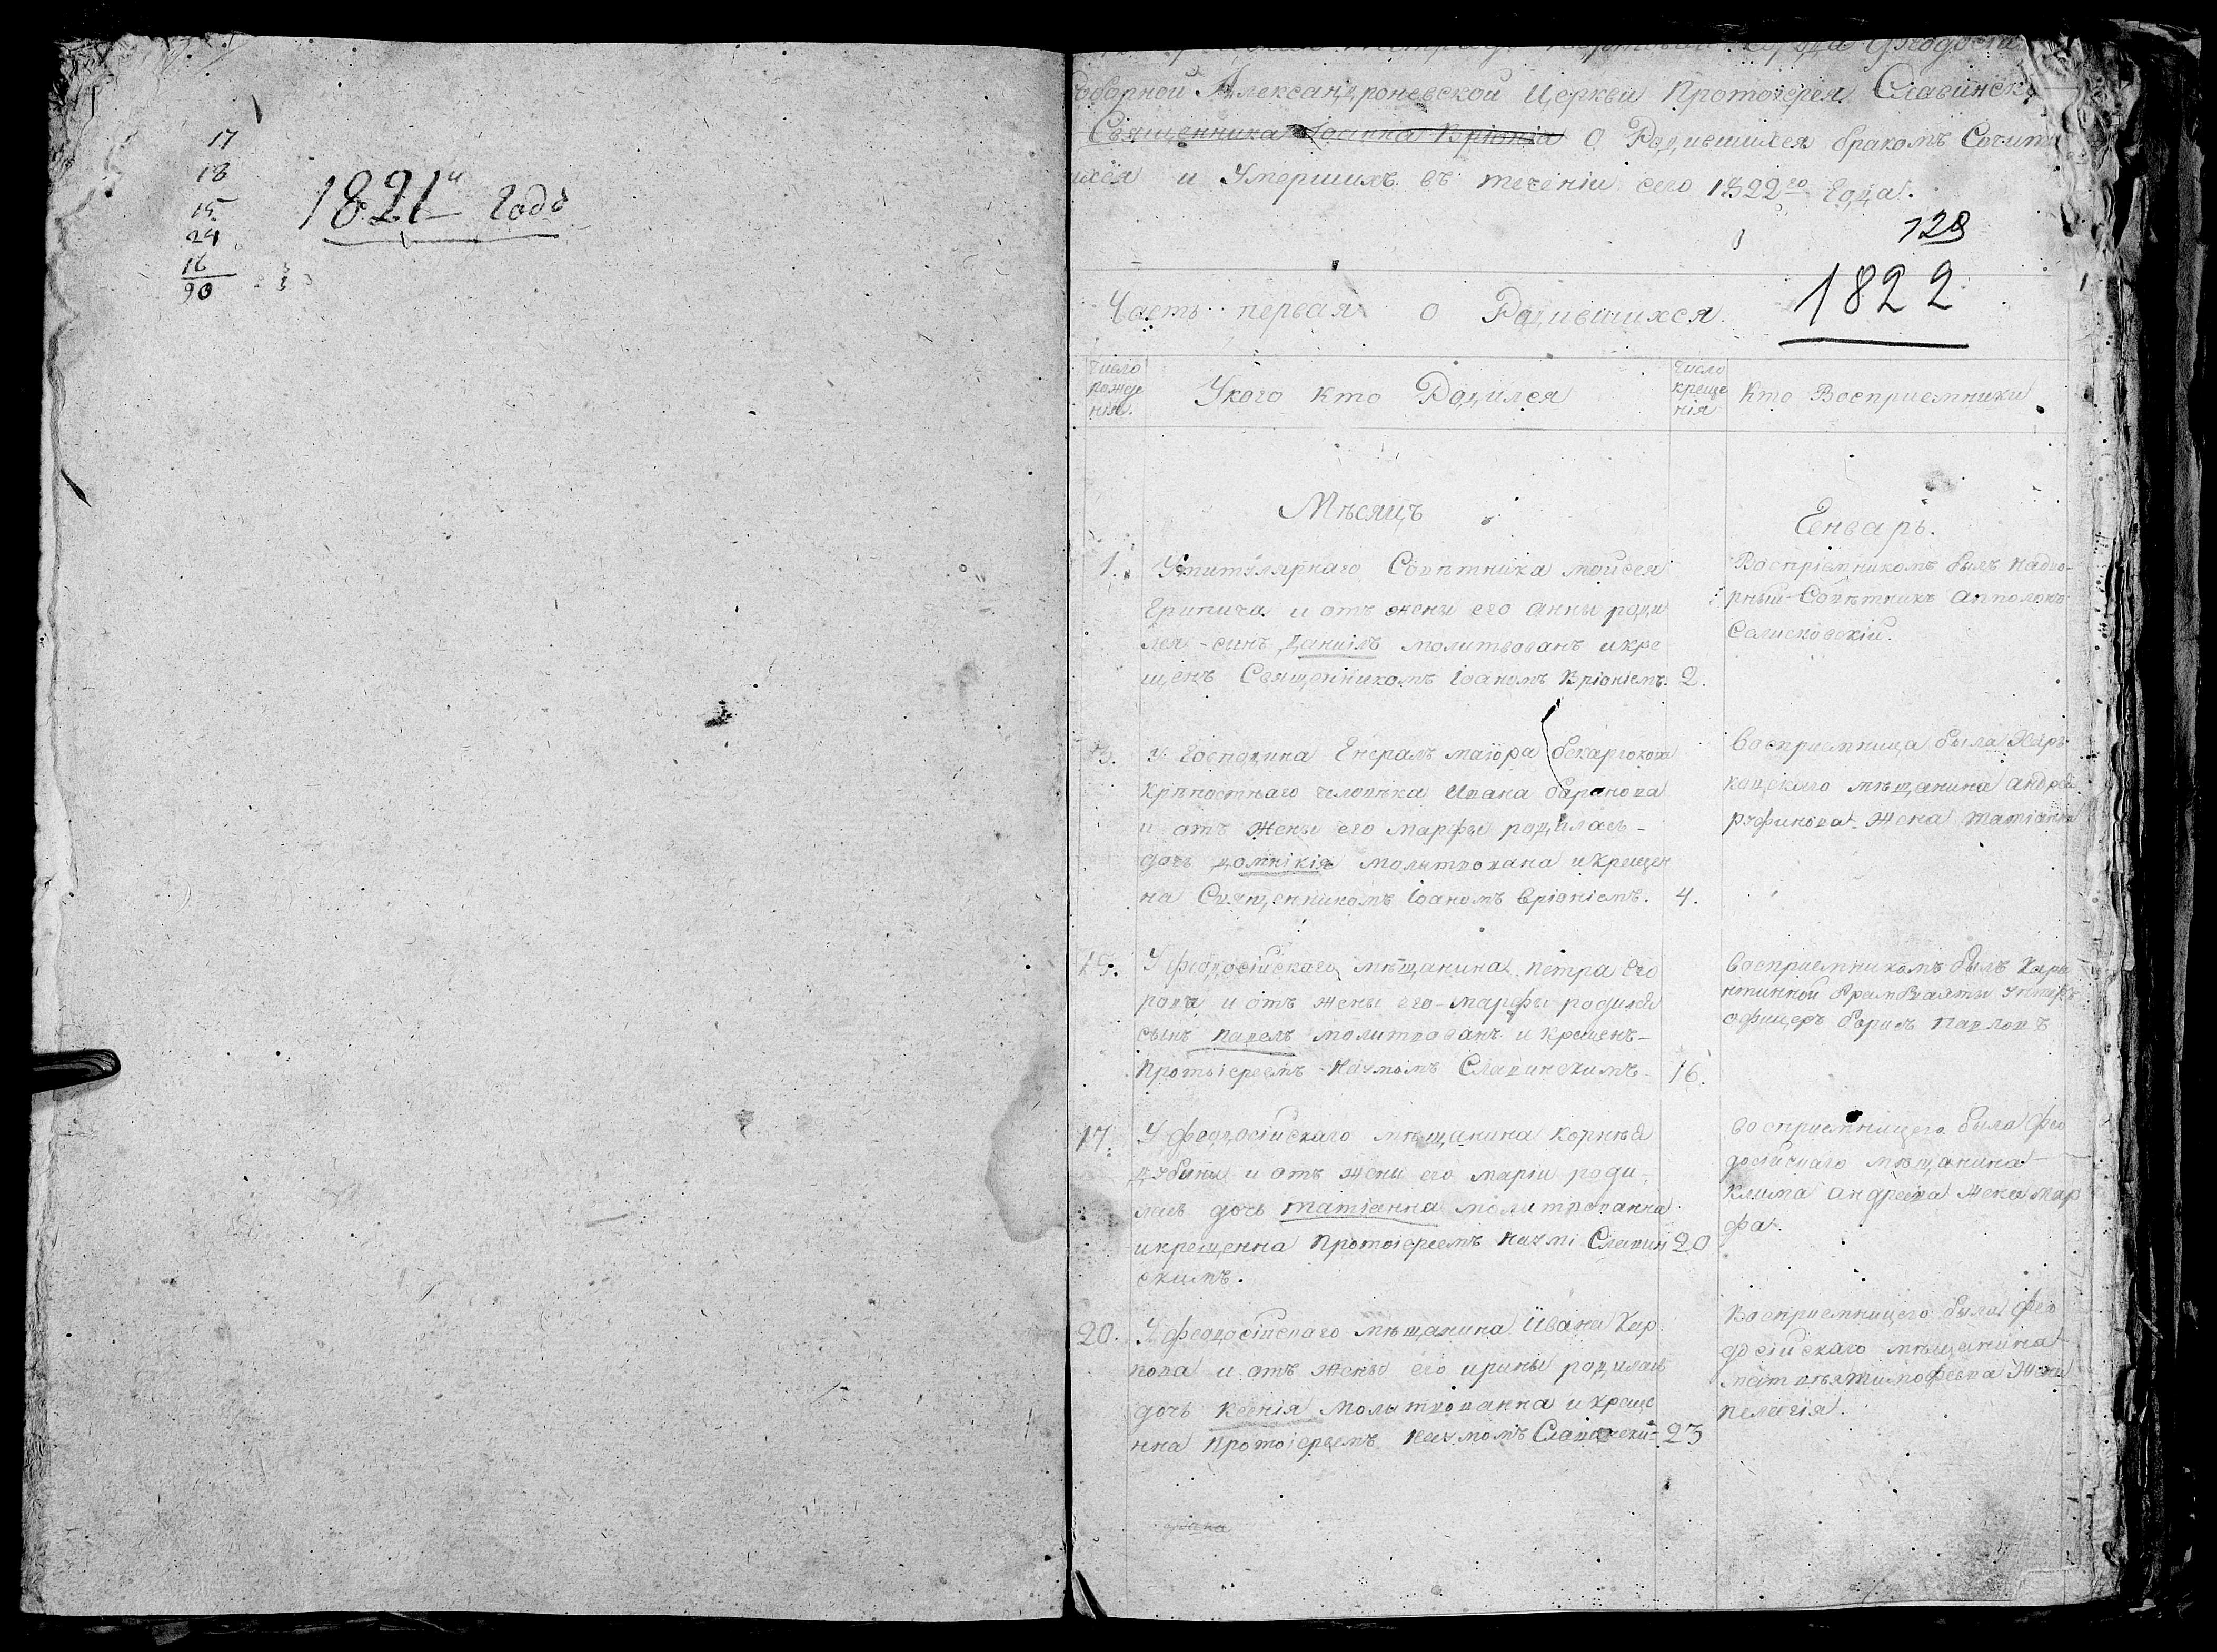 17
18
15
24
16
90
1821й Годъ
города Феодосіи
Соборной Александроневской Церкви Протоіерея Славинск
Священника Іоанна Вріонія О Родившихся бракомъ Сочита
ихся и Умершихъ въ теченіи сего 1822го Года.
128
1822
Часть первая О Родившихся
Число рожде нія.
Укого Кто Родился
Число креще нія
Кто Восприемники
Мѣсяцъ
Генварь.
1. Утитулярнаго Совѣтника моисея
и отъ жены его анны роди
лся сынъ Даніилъ молитвованъ икре
щенъ Священникомъ Іоаномъ Вріоніемъ. 2.
Воспріемникомъ былъ надво-
рный Совѣтникъ апполонъ
3. У Господина Енералъ маіора
крѣпостнаго человѣка Ивана баранова
и отъ Жены его марфы родилась-
дочь домнікія молитвована икрещен
на Священникомъ Іоаномъ Вріоніемъ. 4.
восприемница была Харь-
ковскаго мѣщанина андрея
руфинова Жена татіанна
15. У феодосійскаго мѣщанина петра Его
рова и отъ жены его марфы родился
сынъ павелъ молитвованъ и крещенъ-
Протоіереемъ Наумомъ Славинскимъ- 16.
восприемникомъ былъ Кара
нтинной унтеръ
офицеръ павловъ
17. У феодосійскаго мѣщанина корнѣя
дубины и отъ жены его маріи роди-
лась дочь татіанна молитвованна
икрещенна Протоіереемъ наумі Славин 20
скимъ.
восприемницею была фео
досійскаго мѣщанина
клима андреева Жена мар
фа.
20. У феодосійскаго мѣщанина Ивана Кар
пова и отъ Жены его ирины родилась
дочь ксенія молитвованна икреще
нна Протоіереемъ наумомъ Славински- 23
Восприемницею была фео
досійскаго мѣщанина
матвѣя тимофеева Жена
пелагія.